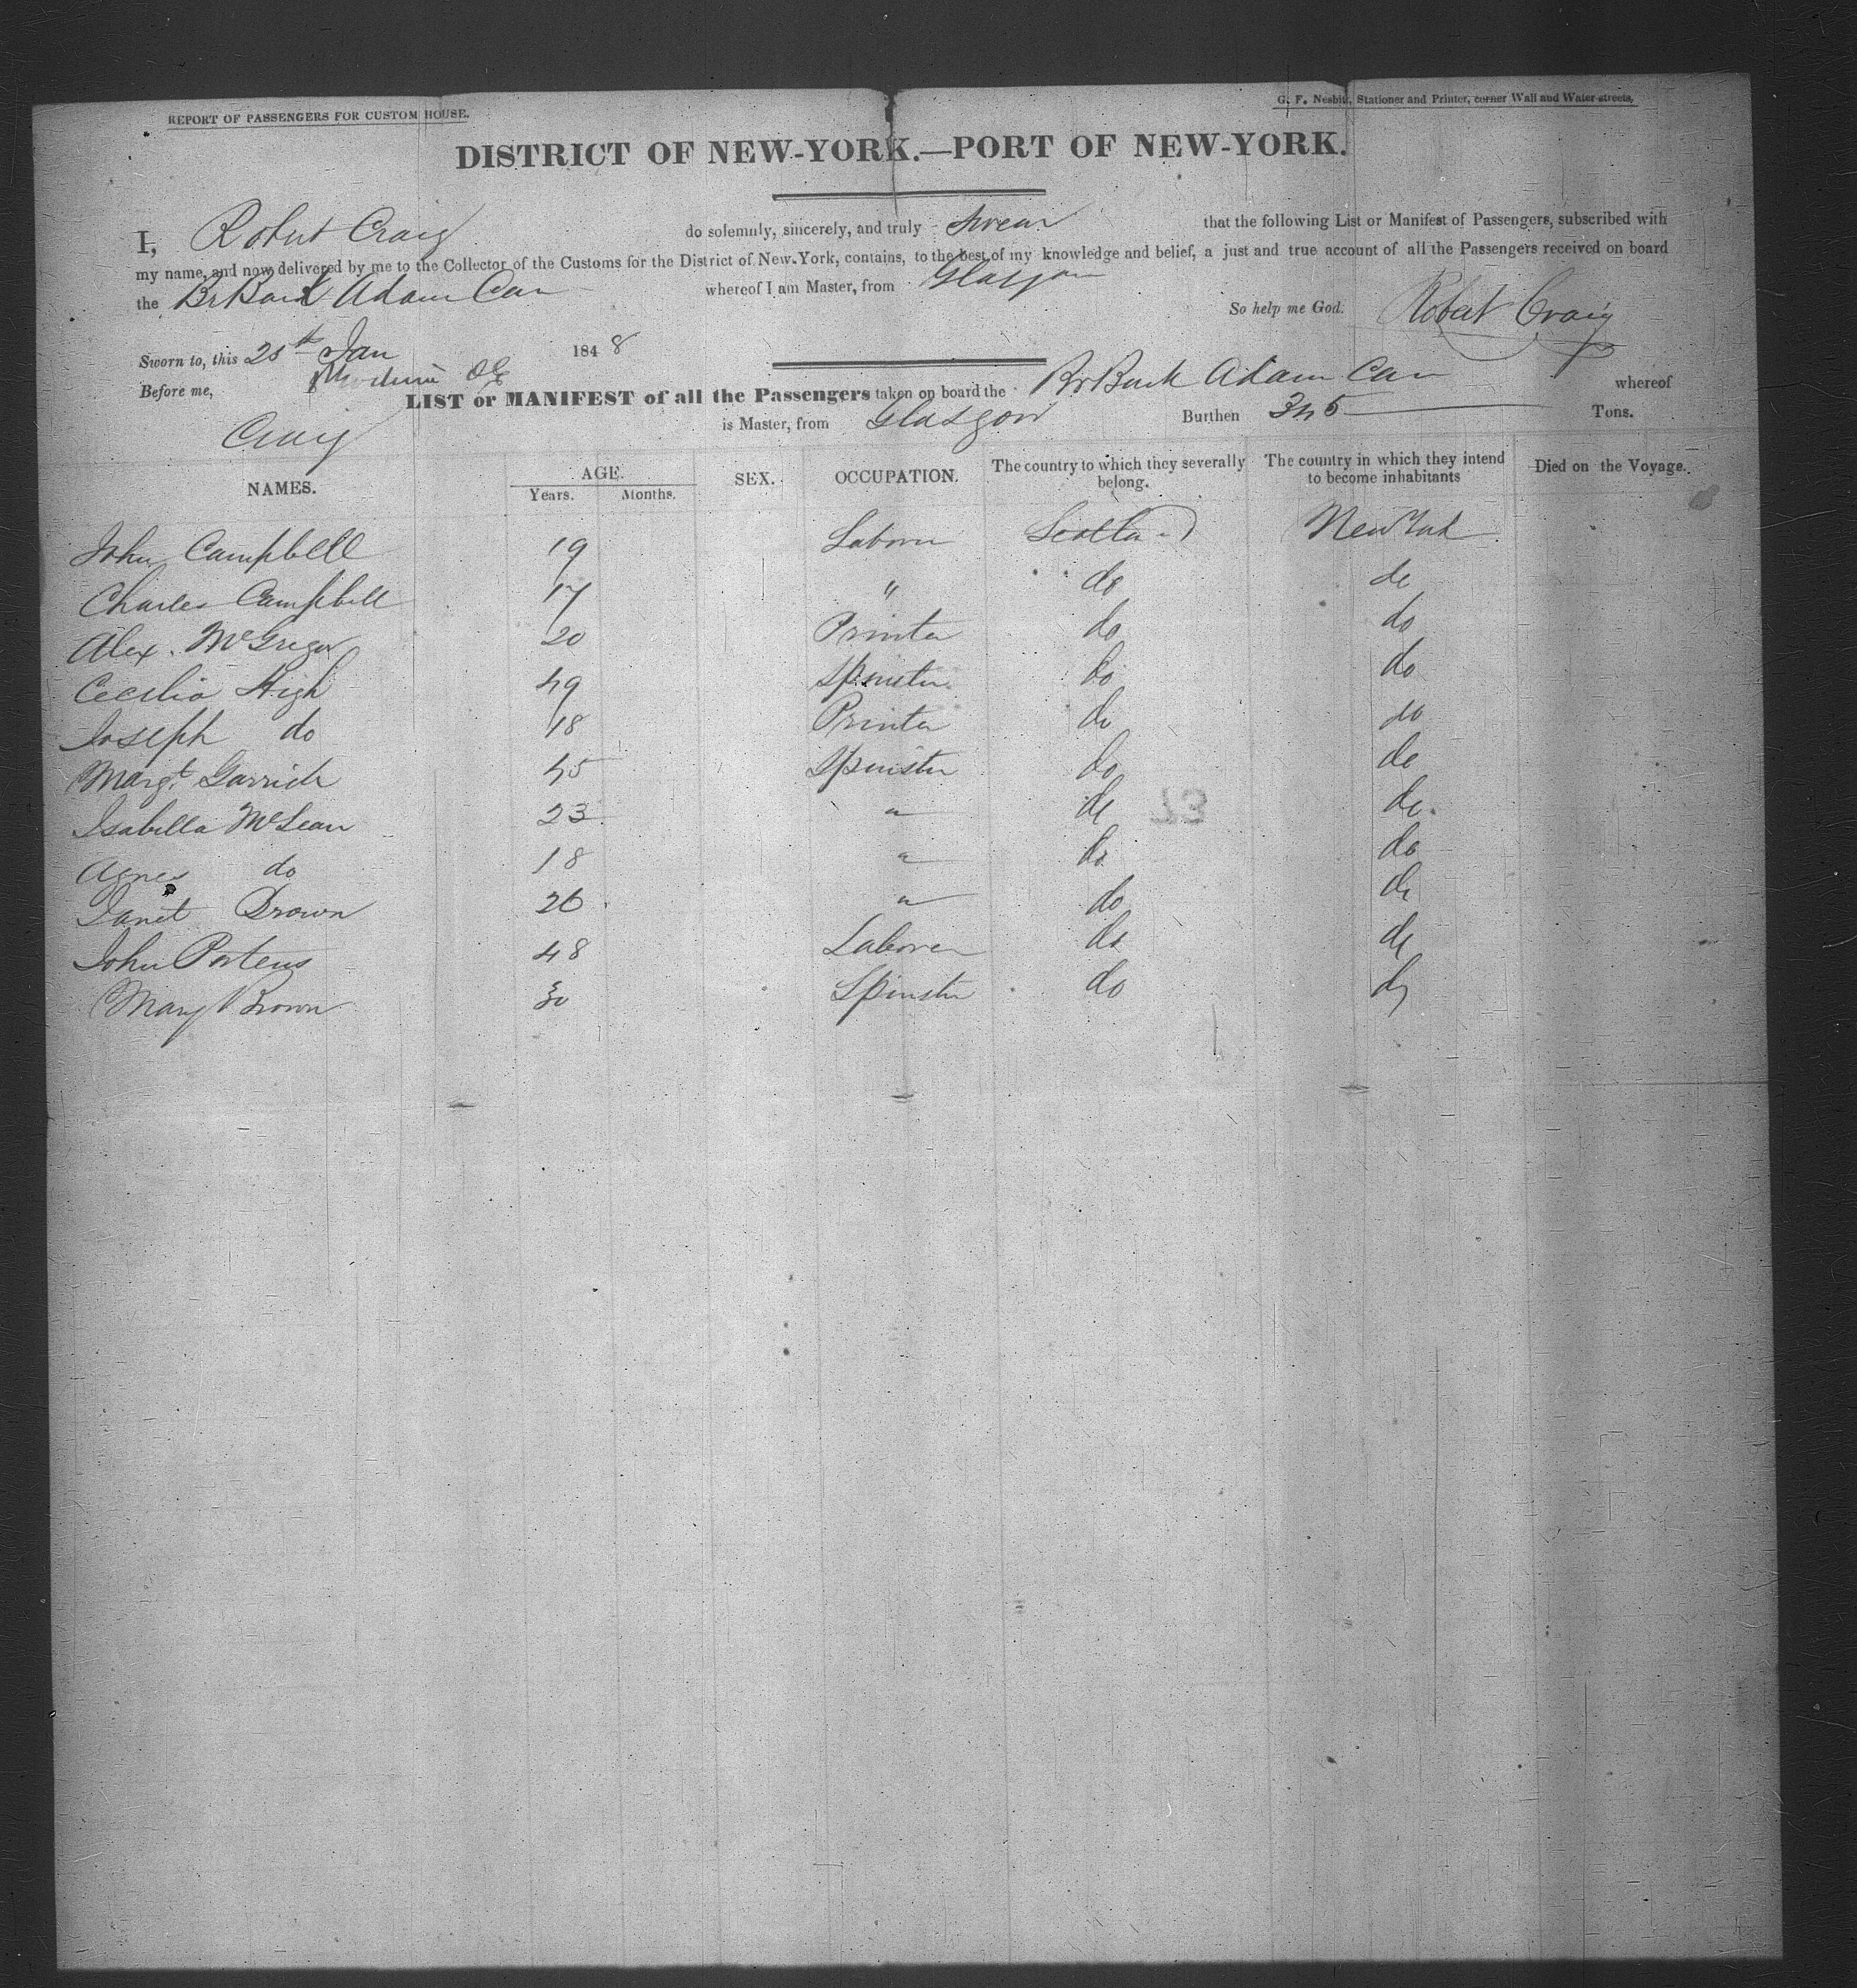 REPORT OF PASSENGERS FOR CUSTOM HOUSE.
G. F. Nesbitt, Stationer and Printer, corner Wall and Water-streets,
DISTRICT OF NEW-YORK.—PORT OF NEW-YORK.
I, Robert Craig do solemnly, sincerely, and truly swear that the following List or Manifest of Passengers, subscribed with
my name, and now delivered by me to the Collector of the Customs for the District of New-York, contains, to the best of my knowledge and belief, a just and true account of all the Passengers received on board
the Br Bark Adam Carr whereof I am Master, from Glasgow
So help me God. Robert Craig
Sworn to, this 25th Jan 1848
Before me,
LIST or MANIFEST of all the Passengers taken on board the Br Bark Adam Carr whereof
Craig is Master, from Glasgow Burthen 345 Tons.
NAMES. AGE. Years. Months. SEX. OCCUPATION. The country to which they severally belong. The country in which they intend to become inhabitants Died on the Voyage.
John Campbell 19 Laborer Scotland New York
Charles Campbell 17 " do do
Alex. McGregor 20 Printer do do
Cecilia High 49 Spinster do do
Joseph do 18 Printer do do
Margt. Garrick 45 Spinster do do
Isabella McLean 23 " do do
Agnes do 18 " do do
Janet Brown 26 " do do
John Porteus 48 Laborer do do
Mary Brown 30 Spinster do do